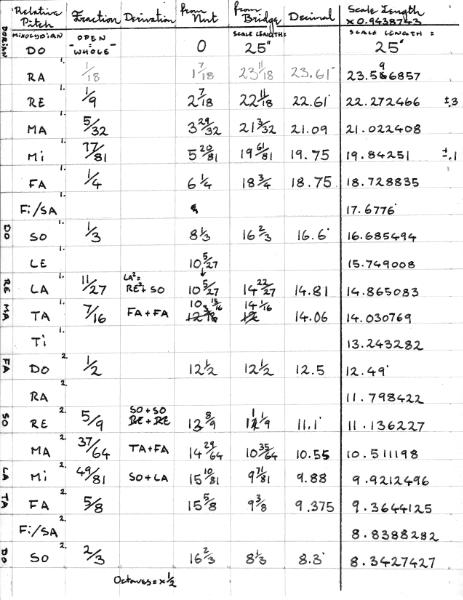 Relative Pitch Fraction Derivation from Nut from Bridge Decimal Scale Length x 0.9438743
DORIAN MIXOLYDIAN DO OPEN = "WHOLE" 0 SCALE LENGTH: 25" SCALE LENGTH: 25"
RA 1. 1/18 1 7/18 23 11/18 23.61 23.596857
RE 1. 1/9 2 7/18 22 11/18 22.61 22.272466 ±.3
MA 1. 5/32 3 29/32 21 3/32 21.09 21.022408
Mi 1. 17/81 5 20/81 19 61/81 19.75 19.84251 ±.1
FA 1. 1/4 6 1/4 18 3/4 18.75 18.728835
Fi/SA 1. 17.6776
DO SO 1. 1/3 8 1/3 16 2/3 16.6 16.685494
LE 1. 10 5/27 15.749008
RE LA 1. 11/27 LA²= RE²+SO 10 5/27 14 22/27 14.81 14.865083
MA TA 1. 7/16 FA+FA 10 15/16 14 1/16 14.06 14.030769
Ti 1. 13.243282
FA DO 2. 1/2 12 1/2 12 1/2 12.5 12.49
RA 2. 11.798422
SO RE 2. 5/9 SO+SO RE+RE 13 8/9 11 1/9 11.1 11.136227
MA 2. 37/64 TA+FA 14 29/64 10 35/64 10.55 10.511198
LA Mi 2. 49/81 SO+LA 15 10/81 9 71/81 9.88 9.9212496
TA FA 2. 5/8 15 5/8 9 3/8 9.375 9.3644125
Fi/SA 2. 8.8388282
DO SO 2. 2/3 16 2/3 8 1/3 8.3 8.3427427
Octaves = x 1/2